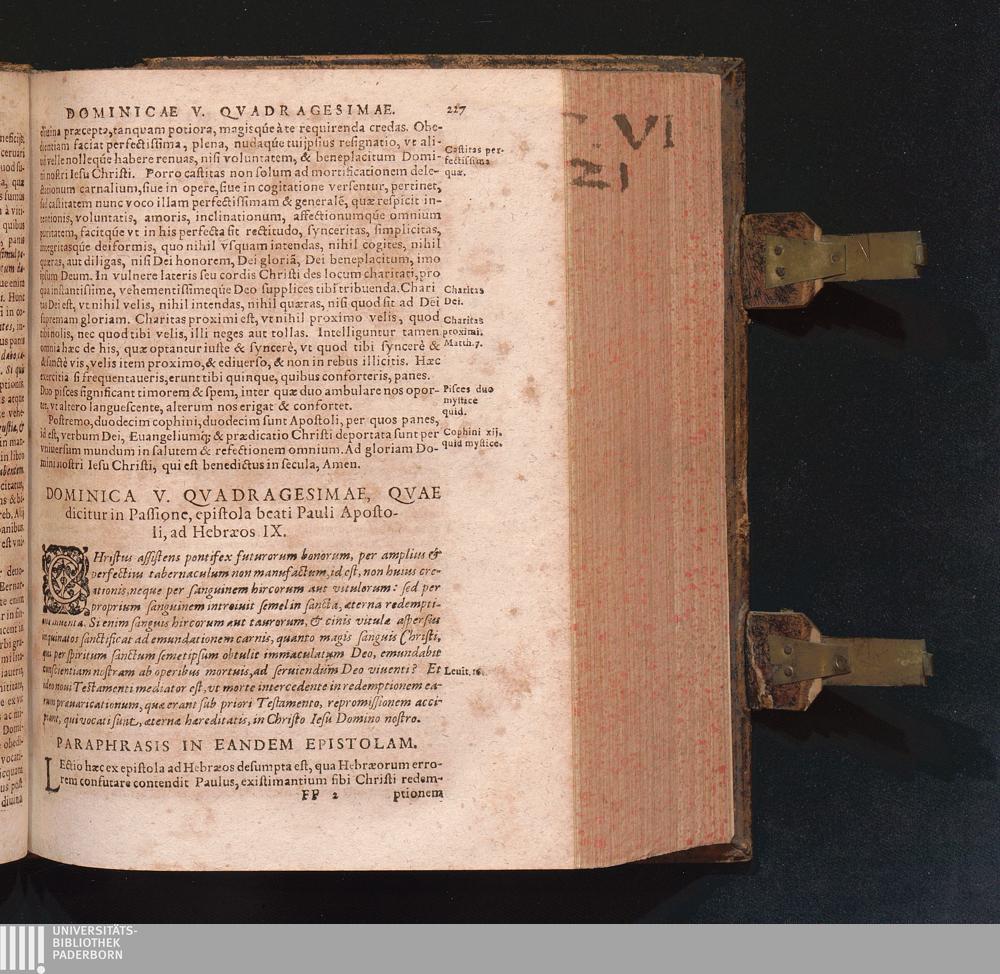 DOMINICAE V. QVADRAGESIMAE. 227
diuina præcepta, tanquam potiora, magisque à te requirenda credas. Obe-
dientiam faciat perfectissima, plena, nudaque tuijpsius resignatio, vt ali-
velle nolleque habere renuas, nisi voluntatem, & beneplacitum Domi-
ni nostri Iesu Christi. Porro castitas non solum ad mortificationem dele-
ctationum carnalium, siue in opere, siue in cogitatione versentur, pertinet,
sed castitatem nunc voco illam perfectissimam & generalē, quæ respicit in-
tentionis, voluntatis, amoris, inclinationum, affectionumque omnium
puritatem, facitque vt in his perfecta sit rectitudo, synceritas, simplicitas,
integritasque deiformis, quo nihil vsquam intendas, nihil cogites, nihil
quæras, aut diligas, nisi Dei honorem, Dei gloriā, Dei beneplacitum, imo
ipsum Deum. In vulnere lateris seu cordis Christi des locum charitati, pro
qua instantissime, vehementissimeque Deo supplices tibi tribuenda. Chari
tas Dei est, vt nihil velis, nihil intendas, nihil quæras, nisi quod sit ad Dei
supremam gloriam. Charitas proximi est, vt nihil proximo velis, quod
tibi nolis, nec quod tibi velis, illi neges aut tollas. Intelliguntur tamen
omnia hæc de his, quæ optantur iuste & syncerè, vt quod tibi syncerè &
& sanctè vis, velis item proximo, & ediuerso, & non in rebus illicitis. Hæc
exercitia si frequentaueris, erunt tibi quinque, quibus conforteris, panes.
Duo pisces significant timorem & spem, inter quæ duo ambulare nos opor-
tet, vt altero languescente, alterum nos erigat & confortet.
Postremo, duodecim cophini, duodecim sunt Apostoli, per quos panes,
id est, verbum Dei, Euangeliumq; & prædicatio Christi deportata sunt per
vniuersum mundum in salutem & refectionem omnium. Ad gloriam Do-
mini nostri Iesu Christi, qui est benedictus in secula, Amen.
Castitas per-
fectissima
quæ.
Charitas
Dei.
Charitas
proximi.
Matth. 7.
Pisces duo
mystice
quid.
Cophini xij.
quid mystice.
DOMINICA V. QVADRAGESIMAE, QVAE
dicitur in Passione, epistola beati Pauli Aposto-
li, ad Hebræos IX.
CHristus assistens pontifex futurorum bonorum, per amplius &
perfectius tabernaculum non manufactum, id est, non huius cre-
ationis, neque per sanguinem hircorum aut vitulorum: sed per
proprium sanguinem introiuit semel in sancta, æterna redempti-
one inuenta. Si enim sanguis hircorum aut taurorum, & cinis vitulæ aspersus
inquinatos sanctificat ad emundationem carnis, quanto magis sanguis Christi,
qui per spiritum sanctum semetipsum obtulit immaculatum Deo, emundabit
conscientiam nostram ab operibus mortuis, ad seruiendum Deo viuenti? Et
ideo noui Testamenti mediator est, vt morte intercedente in redemptionem ea-
rum præuaricationum, quæ erant sub priori Testamento, repromissionem acci
piant, qui vocati sunt, æternæ hæreditatis, in Christo Iesu Domino nostro.
Leuit. 16.
PARAPHRASIS IN EANDEM EPISTOLAM.
LEctio hæc ex epistola ad Hebræos desumpta est, qua Hebræorum erro-
rem confutare contendit Paulus, existimantium sibi Christi redem-
FF 2 ptionem
VI
21
UNIVERSITÄTS-
BIBLIOTHEK
PADERBORN